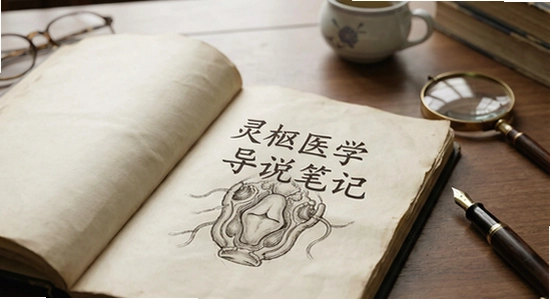 灵枢医学
导说笔记